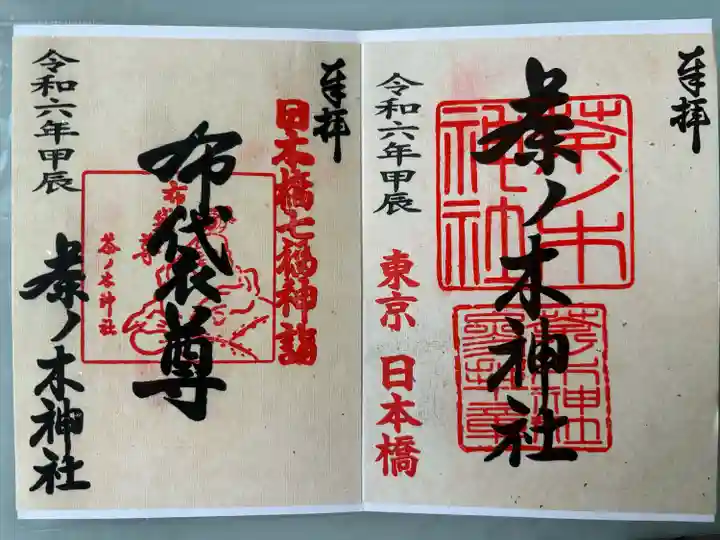 奉拝
茶ノ木神社
令和六年甲辰
東京 日本橋
茶ノ木神社
奉拝
日本橋七福神詣
布袋尊
布袋尊
茶ノ木神社
令和六年甲辰
茶ノ木神社